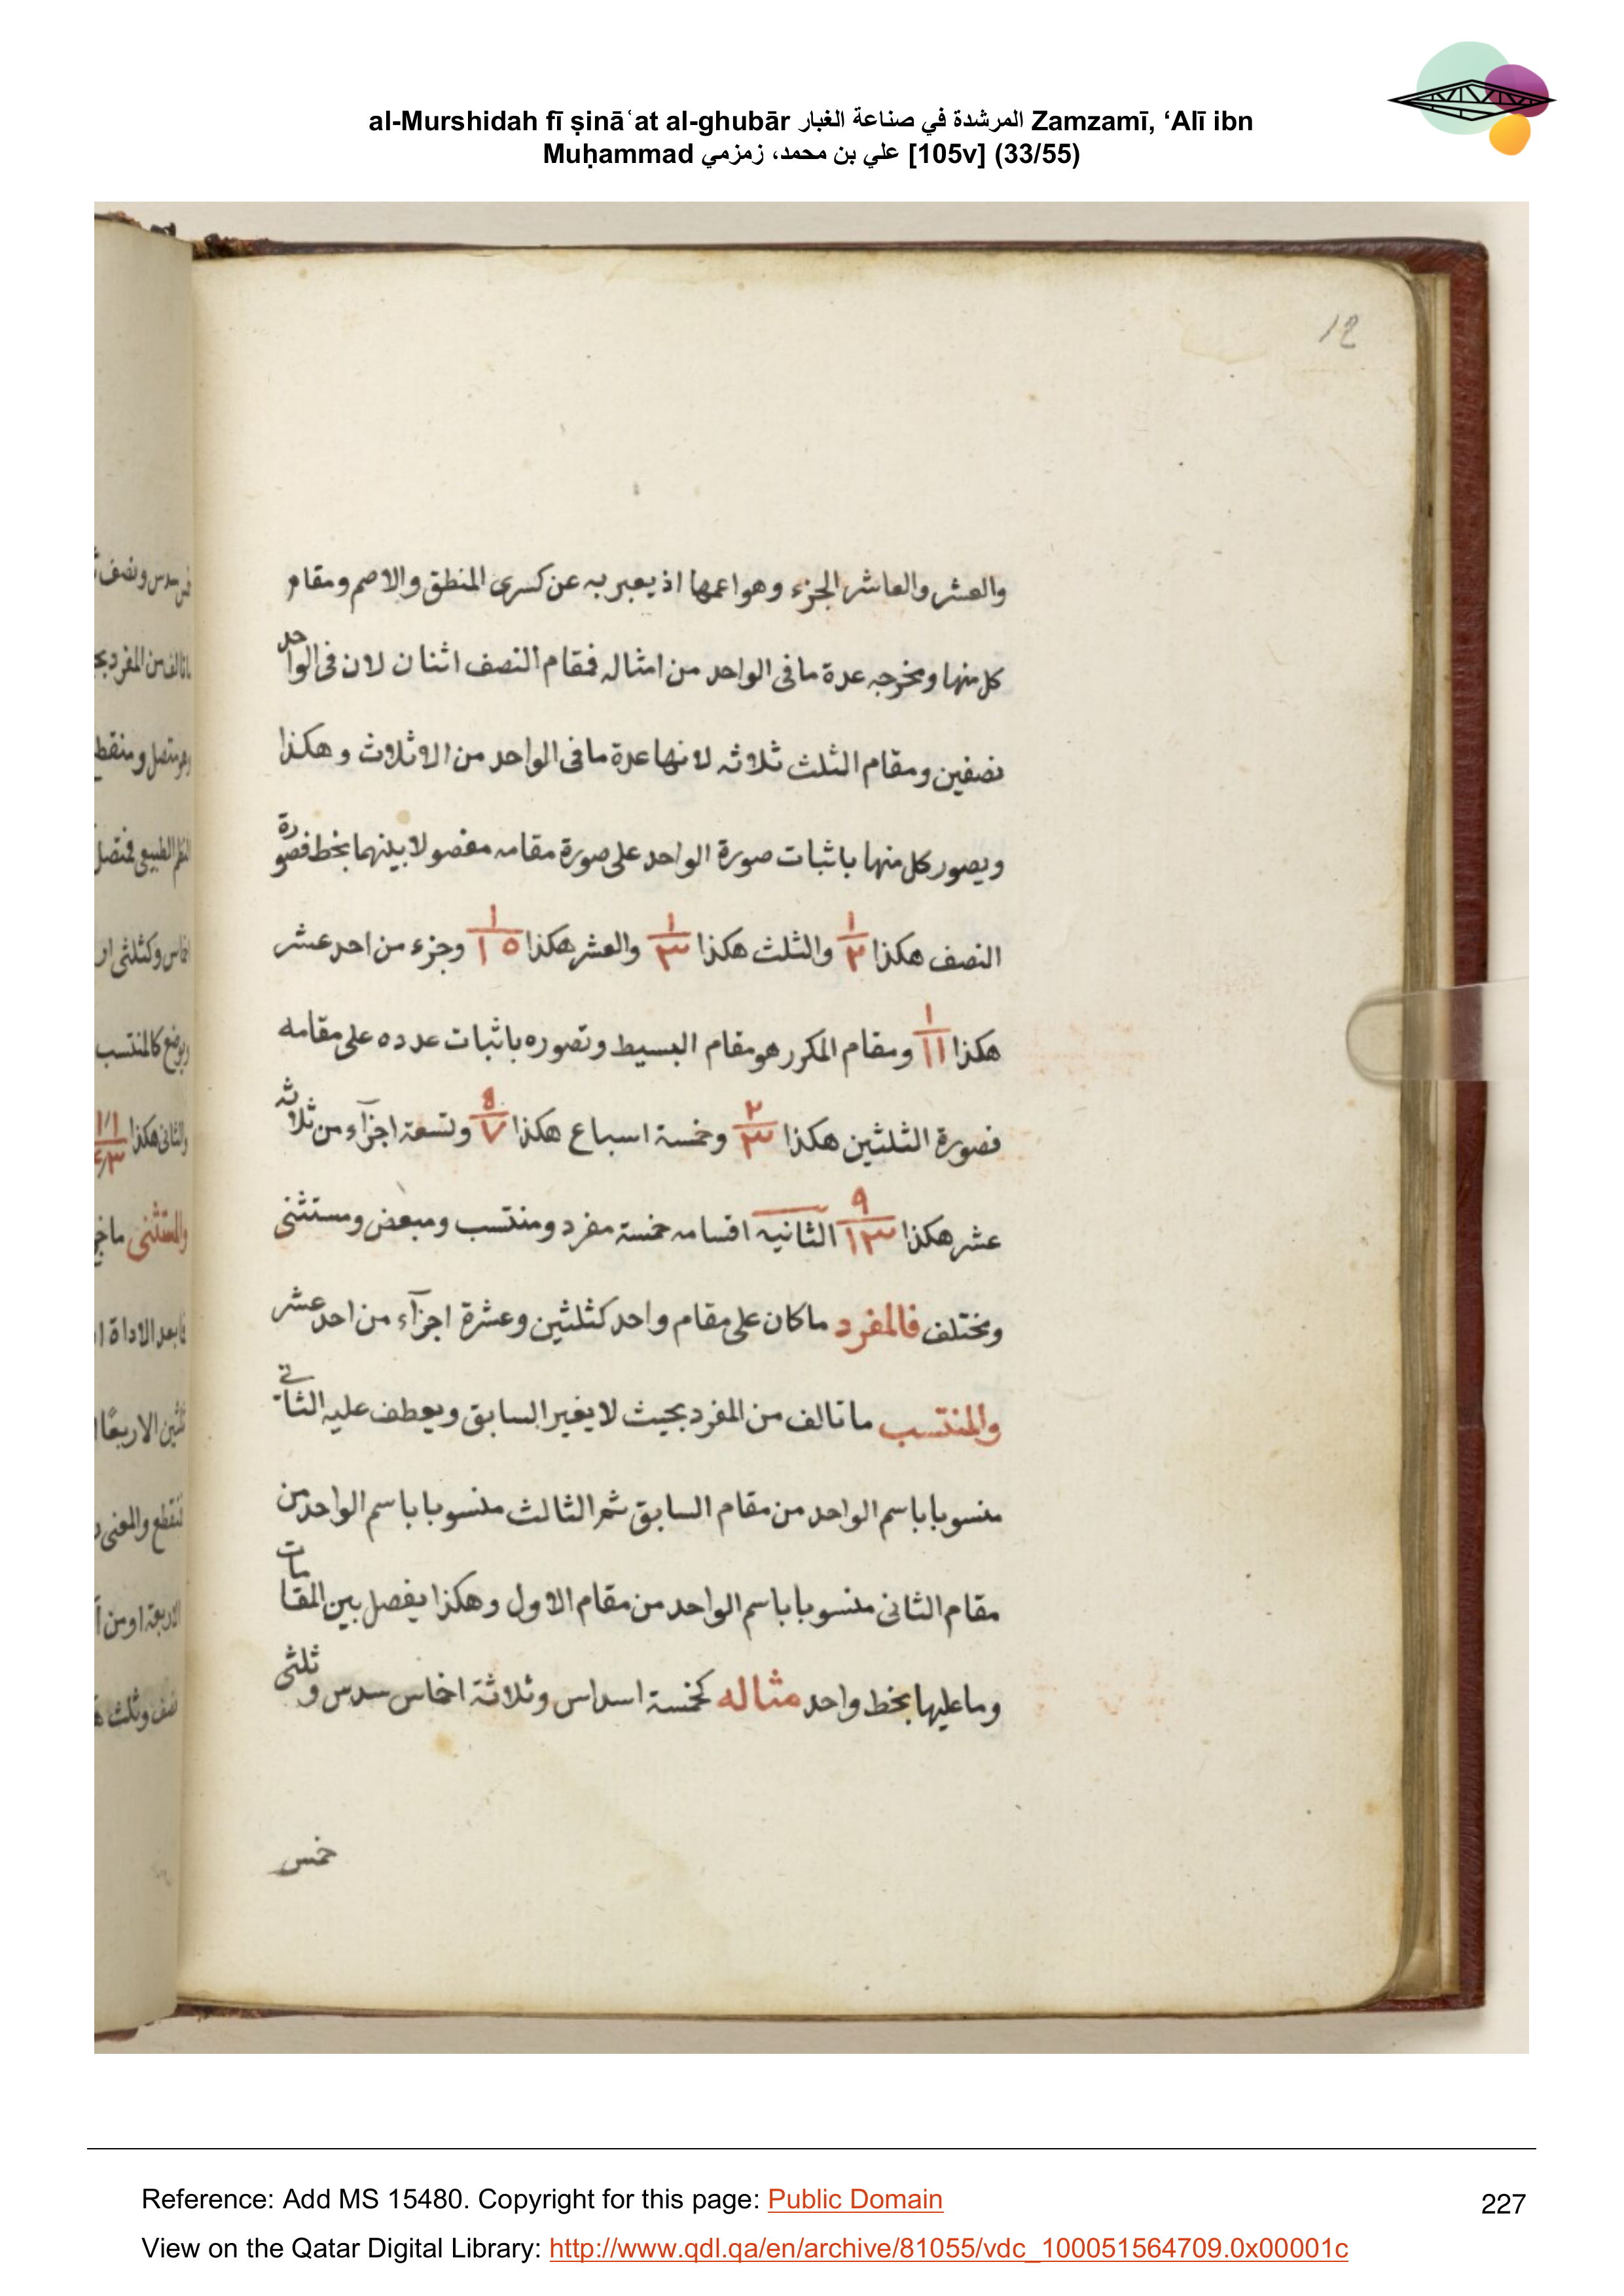 al-Murshidah fī ṣināʿat al-ghubār المرشدة في صناعة الغبار Zamzamī, ‘Alī ibn
Muḥammad علي بن محمد، زمزمي [105v] (33/55)
12
والعشر والعاشر الجزء وهو اعمها اذ يعبر به عن كسرى المنطق والاصم ومقام
كل منها ومخرجه عدة ما فى الواحد من امثاله فمقام النصف اثنان لان فى الواحد
نصفين ومقام الثلث ثلاثه لانها عدة ما فى الواحد من الاثلاث وهكذا
ويصور كل منها باثبات صورة الواحد على صورة مقامه مفصولا بينهما بخط فصورة
النصف هكذا ١/٢ والثلث هكذا ١/٣ والعشر هكذا ١/١٥ وجزء من احد عشر
هكذا ١/١١ ومقام المكرر هو مقام البسيط وتصوره باثبات عدده على مقامه
فصورة الثلثين هكذا ٢/٣ وخمسة اسباع هكذا ٥/٧ وتسعة اجزآء من ثلاثه
عشر هكذا ٩/١٣ الثانيه اقسامه خمسة مفرد ومنتسب ومبعض ومستثنى
ومختلف فالمفرد ما كان على مقام واحد كثلثين وعشرة اجزآء من احد عشر
والمنتسب ما تالف من المفرد بحيث لا يغير السابق ويعطف عليه الثانى
منسوبا باسم الواحد من مقام السابق ثم الثالث منسوبا باسم الواحد من
مقام الثانى منسوبا باسم الواحد من مقام الاول وهكذا يفصل بين المقامات
وما عليها بخط واحد مثاله كخمسة اسداس وثلاثة اخماس سدس وثلثى
خمس
Reference: Add MS 15480. Copyright for this page: Public Domain
227
View on the Qatar Digital Library: http://www.qdl.qa/en/archive/81055/vdc_100051564709.0x00001c